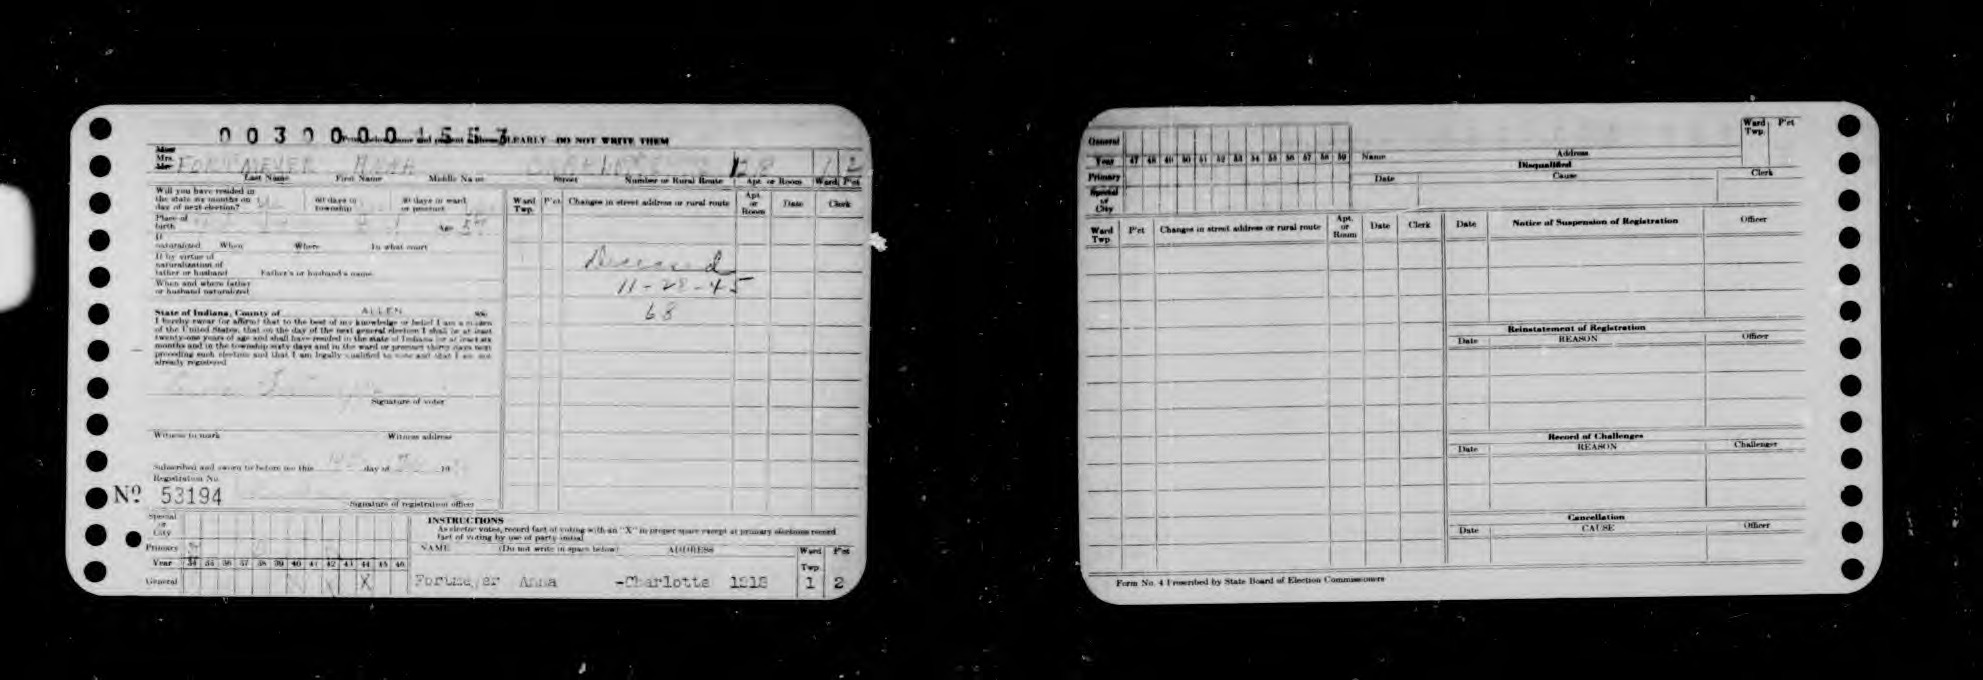 0030000 1557
CLEARLY DO NOT WRITE THEM
Miss
Mrs.
Mr.
FORTMEYER ANNA CHARLOTTE 1 2
Last Name First Name Middle Name Street Number or Rural Route Apt. or Room Ward P'ct
Will you have resided in
the state six months on
day of next election?
60 days in
township
30 days in ward
or precinct
Place of
birth
Age
If
naturalized When Where In what court
If by virtue of
naturalization of
father or husband Father's or husband's name
When and where father
or husband naturalized
State of Indiana, County of ALLEN ss:
I hereby swear (or affirm) that to the best of my knowledge or belief I am a citizen
of the United States, that on the day of the next general election I shall be at least
twenty-one years of age and shall have resided in the state of Indiana for at least six
months and in the township sixty days and in the ward or precinct thirty days next
preceding such election and that I am legally qualified to vote and that I am not
already registered
Anna Fortmeyer
Signature of voter
Witness to mark Witness address
Subscribed and sworn to before me this day of 19
Registration No.
Nº 53194
Signature of registration officer
Ward
Twp. P'ct Changes in street address or rural route Apt.
or
Room Date Clerk
Deceased
11-28-45
68
Special
or
City
Primary
Year 34 35 36 37 38 39 40 41 42 43 44 45 46
General X X X
INSTRUCTIONS
As elector votes, record fact of voting with an "X" in proper space except at primary elections record
fact of voting by use of party initial
NAME (Do not write in space below) ADDRESS Ward
Twp. P'ct
Fortmeyer Anna -Charlotte 1818 1 2
General
Year 47 48 49 50 51 52 53 54 55 56 57 58 59
Primary
Special
or
City
Name Address Ward
Twp. P'ct
Disqualified
Date Cause Clerk
Ward
Twp. P'ct Changes in street address or rural route Apt.
or
Room Date Clerk
Date Notice of Suspension of Registration Officer
Reinstatement of Registration
Date REASON Officer
Record of Challenges
Date REASON Challenger
Cancellation
Date CAUSE Officer
Form No. 4 Prescribed by State Board of Election Commissioners